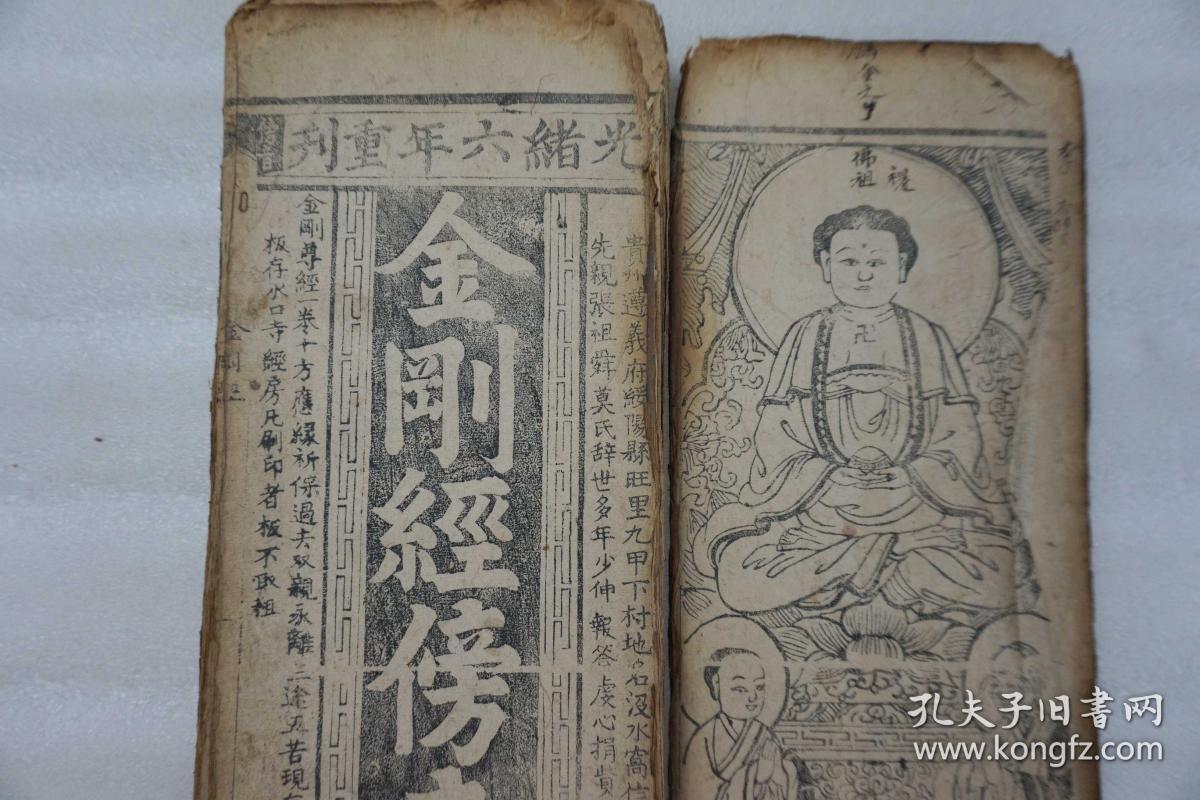 光緒六年重刋
貴州遵義府綏陽縣旺里九甲下村地名沒水窩信
先親張祖舜奠氏辞世多年少伸報答虔心捐貲
金剛經傍
金剛尊經一卷十方應緣祈保過去双親永離三途五苦現在
板存水口寺經房凡刷印者板不取租
佛祖
孔夫子旧书网
www.kongfz.com